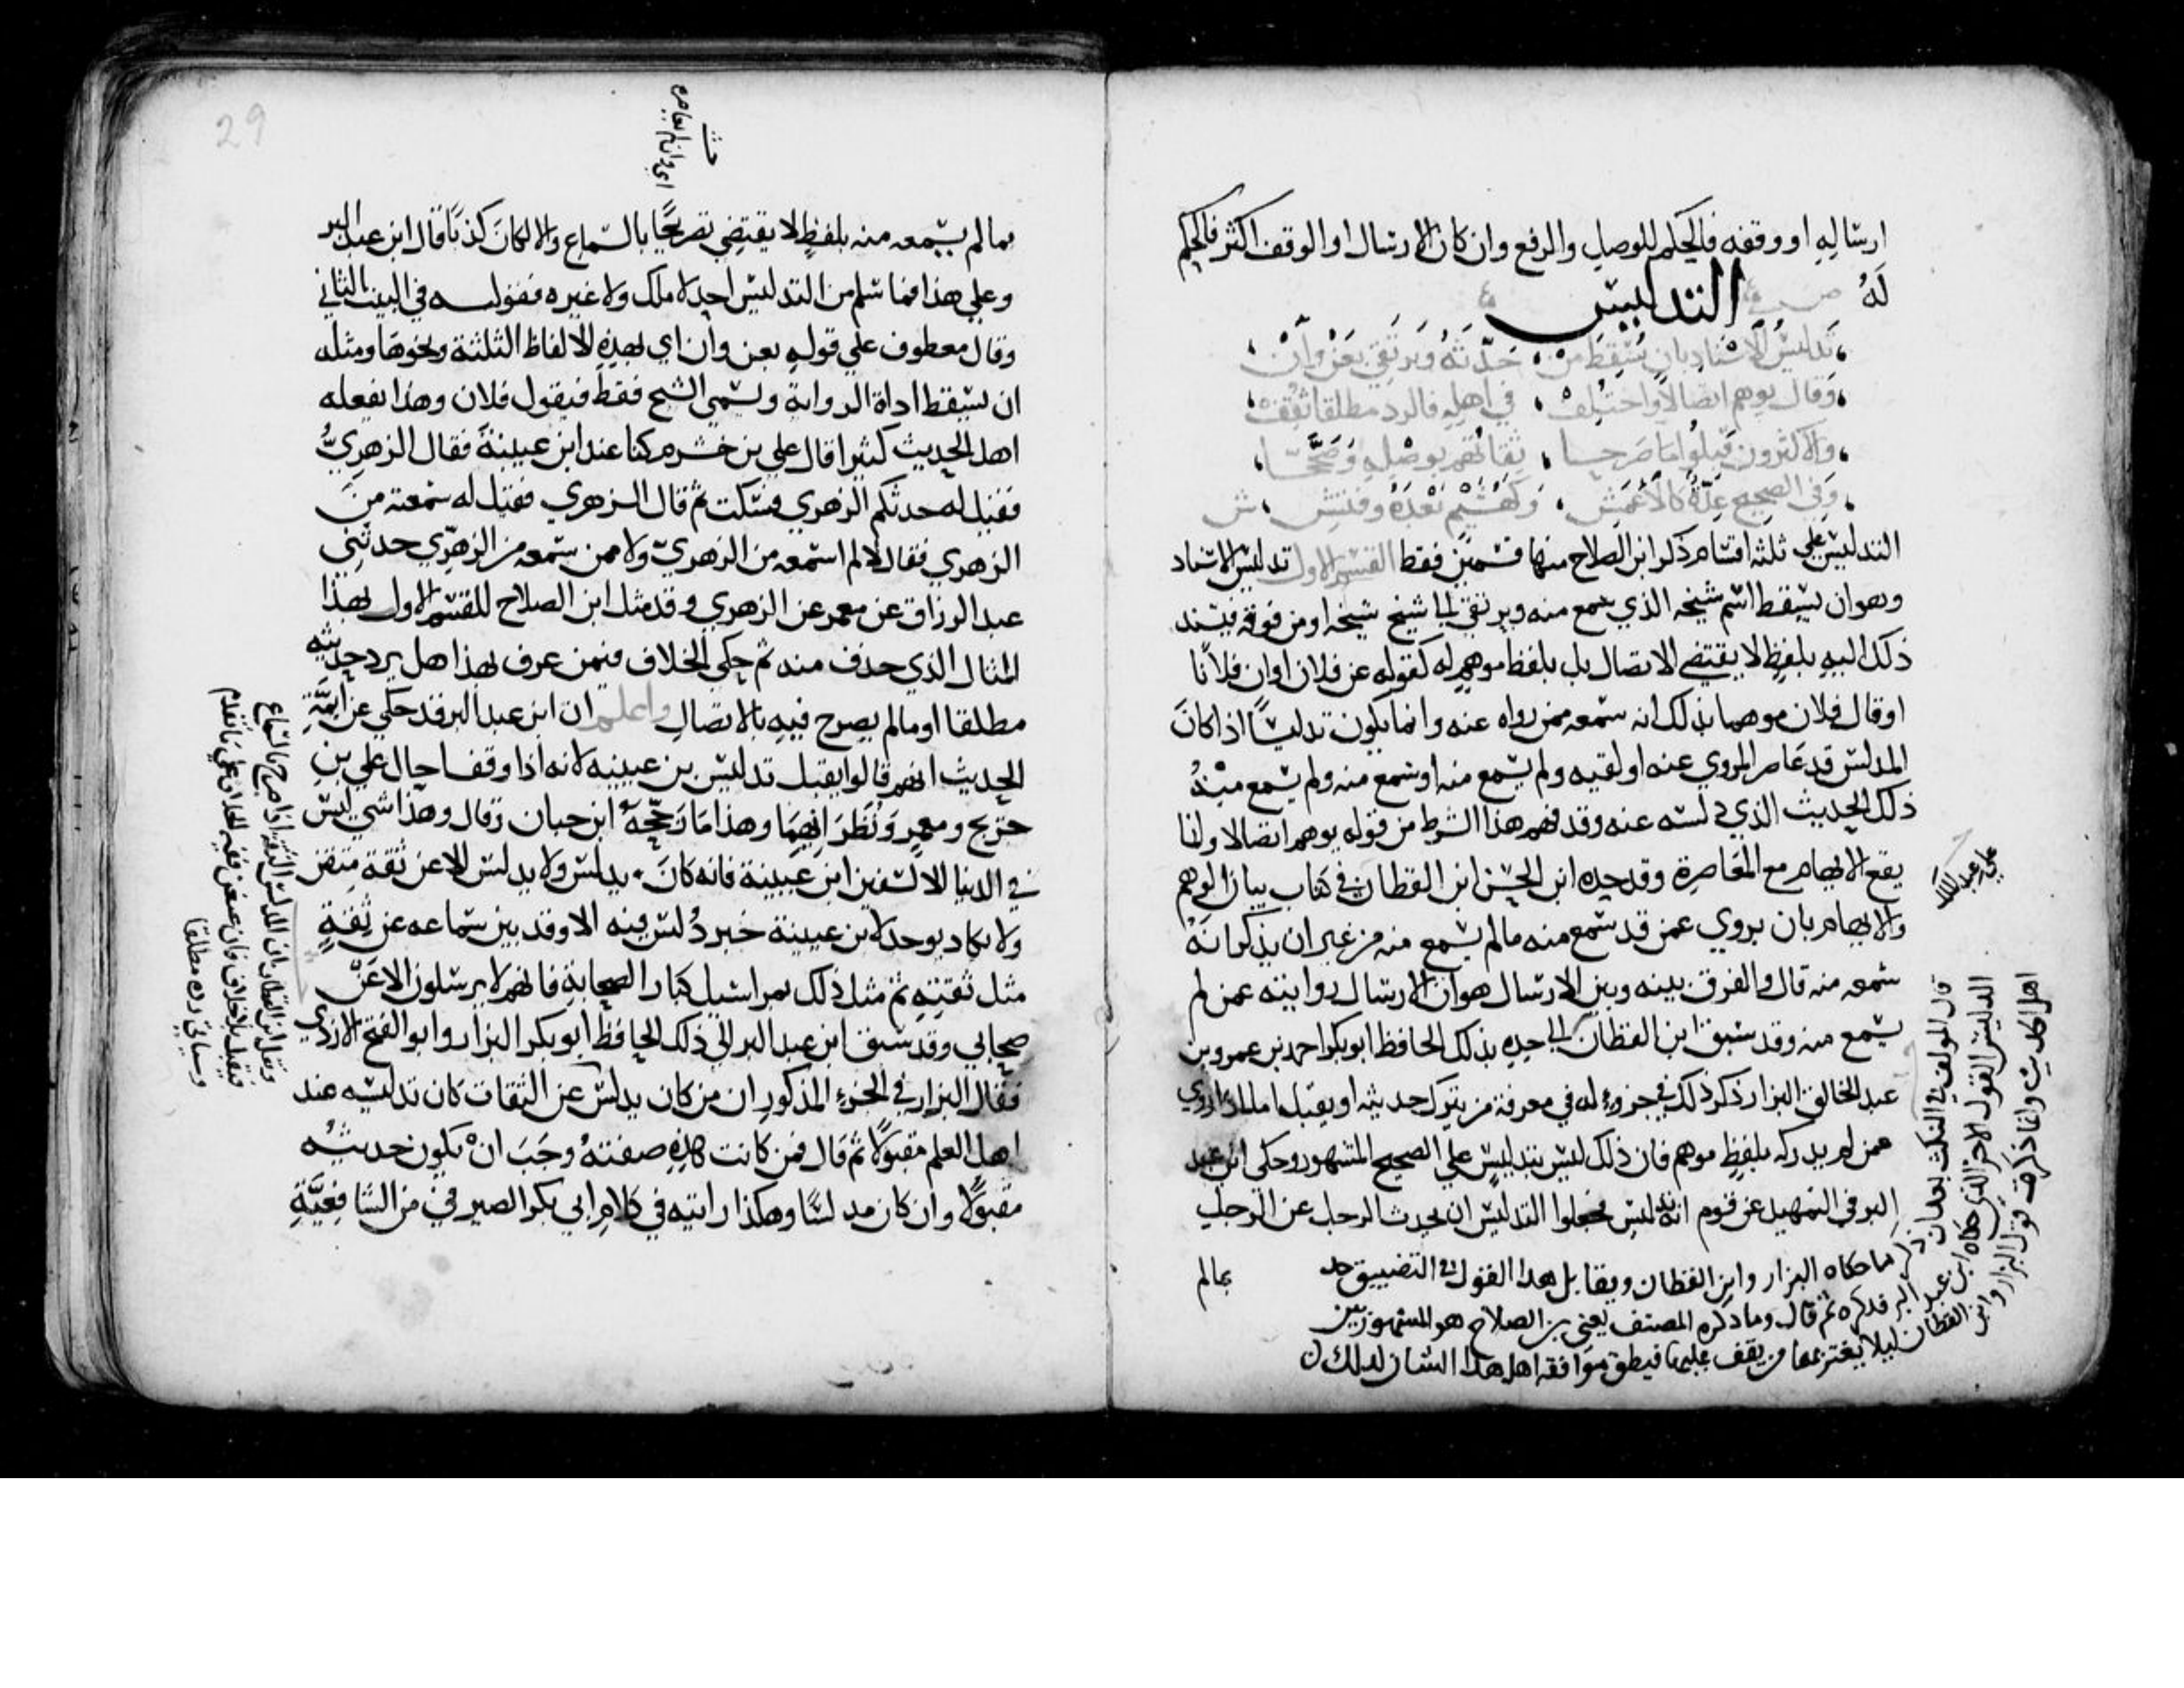 ارساله او وقفه فالحكم للوصل والرفع وان كان الارسال او الوقف اكثر فالحكم
له
التدليس
تدليس الاسناد بان يسقط من حدثه ويرتقي بعن وان
وقال يوهم اتصالا واختلف في اهله فالرد مطلقا ثقف
والاكثرون قبلوا ما صرحا ثقاتهم بوصله وصححا
وفي الصحيح عدة كالاعمش وكهشيم بعده وفتش ش
التدليس علي ثلثه اقسام ذكر ابن الصلاح منها قسمين فقط القسم الاول تدليس الاسناد
وهو ان يسقط اسم شيخه الذي سمع منه ويرتقي الي شيخ شيخه او من فوقه فيسند
ذلك اليه بلفظ لا يقتضي الاتصال بل بلفظ موهم له كقوله عن فلان او ان فلانا
او قال فلان موهما بذلك انه سمعه ممن رواه عنه وانما يكون تدليسا اذا كان
المدلس قد عاصر المروي عنه او لقيه ولم يسمع منه او سمع منه ولم يسمع منه
ذلك الحديث الذي دلسه عنه وقد فهم هذا الشرط من قوله يوهم اتصالا وانما
يقع الايهام مع المعاصرة وقد حده ابن الحسن ابن القطان في كتاب بيان الوهم
والايهام بان يروي عمن قد سمع منه ما لم يسمع منه من غير ان يذكر انه
سمعه منه قال والفرق بينه وبين الارسال هو ان الارسال روايته عمن لم
يسمع منه وقد سبق ابن القطان الي حده بذلك الحافظ ابو بكر احمد بن عمرو بن
عبد الخالق البزار ذكر ذلك في جزء له في معرفة من يترك حديثه او يقبل اما اذا روي
عمن لم يدركه بلفظ موهم فان ذلك ليس بتدليس علي الصحيح المشهور وحكي ابن عبد
البر في التمهيد عن قوم انه تدليس فجعلوا التدليس ان يحدث الرجل عن الرجل
بمالم
علي بن عبد الملك
قال المولف في النكت بعد ان ذكر ما حكاه البزار وابن القطان ويقابل هذا القول في التضييق حد
التدليس القول الاخر الذي حكاه ابن عبد البر فذكره ثم قال وما ذكره المصنف يعني بن الصلاح هو المشهور بين
اهل الحديث وانما ذكرت قول البزار وابن القطان ليلا يغتر بهما من يقف عليهما فيظن موافقة اهل هذا الشان لذلك
29
اي وان لم يعاصره
بما لم يسمعه منه بلفظ لا يقتضي تصريحا بالسماع والا لكان كذبا قال ابن عبد البر
وعلي هذا فما سلم من التدليس احد لا ملك ولا غيره فقوله في البيت الثاني
وقال معطوف علي قوله بعن وان اي بهذه الالفاظ الثلثة ونحوها ومثله
ان يسقط اداة الرواية ويسمي الشيخ فقط فيقول فلان وهذا يفعله
اهل الحديث كثيرا قال علي بن خشرم كنا عند ابن عيينة فقال الزهري
فقيل له حدثكم الزهري فسكت ثم قال الزهري فقيل له سمعته من
الزهري فقال لا لم اسمعه من الزهري ولا ممن سمعه من الزهري حدثني
عبد الرزاق عن معمر عن الزهري وقد مثل ابن الصلاح للقسم الاول بهذا
المثال الذي حذف منه ثم حكي الخلاف فيمن عرف بهذا هل يرد حديثه
مطلقا او مالم يصرح فيه بالاتصال واعلم ان ابن عبد البر قد حكي عن ايمة
الحديث انهم قالوا يقبل تدليس بن عيينه لانه اذا وقف احال علي بن
جريج ومعمر ونظرائهما وهذا ما رجحه ابن حبان وقال وهذا شي ليس
في الدنيا الا لسفين ابن عيينة فانه كان يدلس ولا يدلس الا عن ثقة متقن
ولا يكاد يوجد لابن عيينة خبر دلس فيه الا وقد بين سماعه عن ثقة
مثل ثقته ثم مثل ذلك بمراسيل كبار الصحابة فانهم لا يرسلون الا عن
صحابي وقد سبق ابن عبد البر الي ذلك الحافظ ابو بكر البزار وابو الفتح الازدي
فقال البزار في الجزء المذكور ان من كان يدلس عن الثقات كان تدليسه عند
اهل العلم مقبولا ثم قال فمن كانت هذه صفته وجب ان يكون حديثه
مقبولا وان كان مدلسا وهكذا رايته في كلام ابي بكر الصيرفي من الشافعية
ونقل ابن القطان ان المدلس الثقة اذا صرح بالسماع
فيقبل بلا خلاف وان عنعن ففيه الخلاف علي ما تقدم
وسياتي رده مطلقا